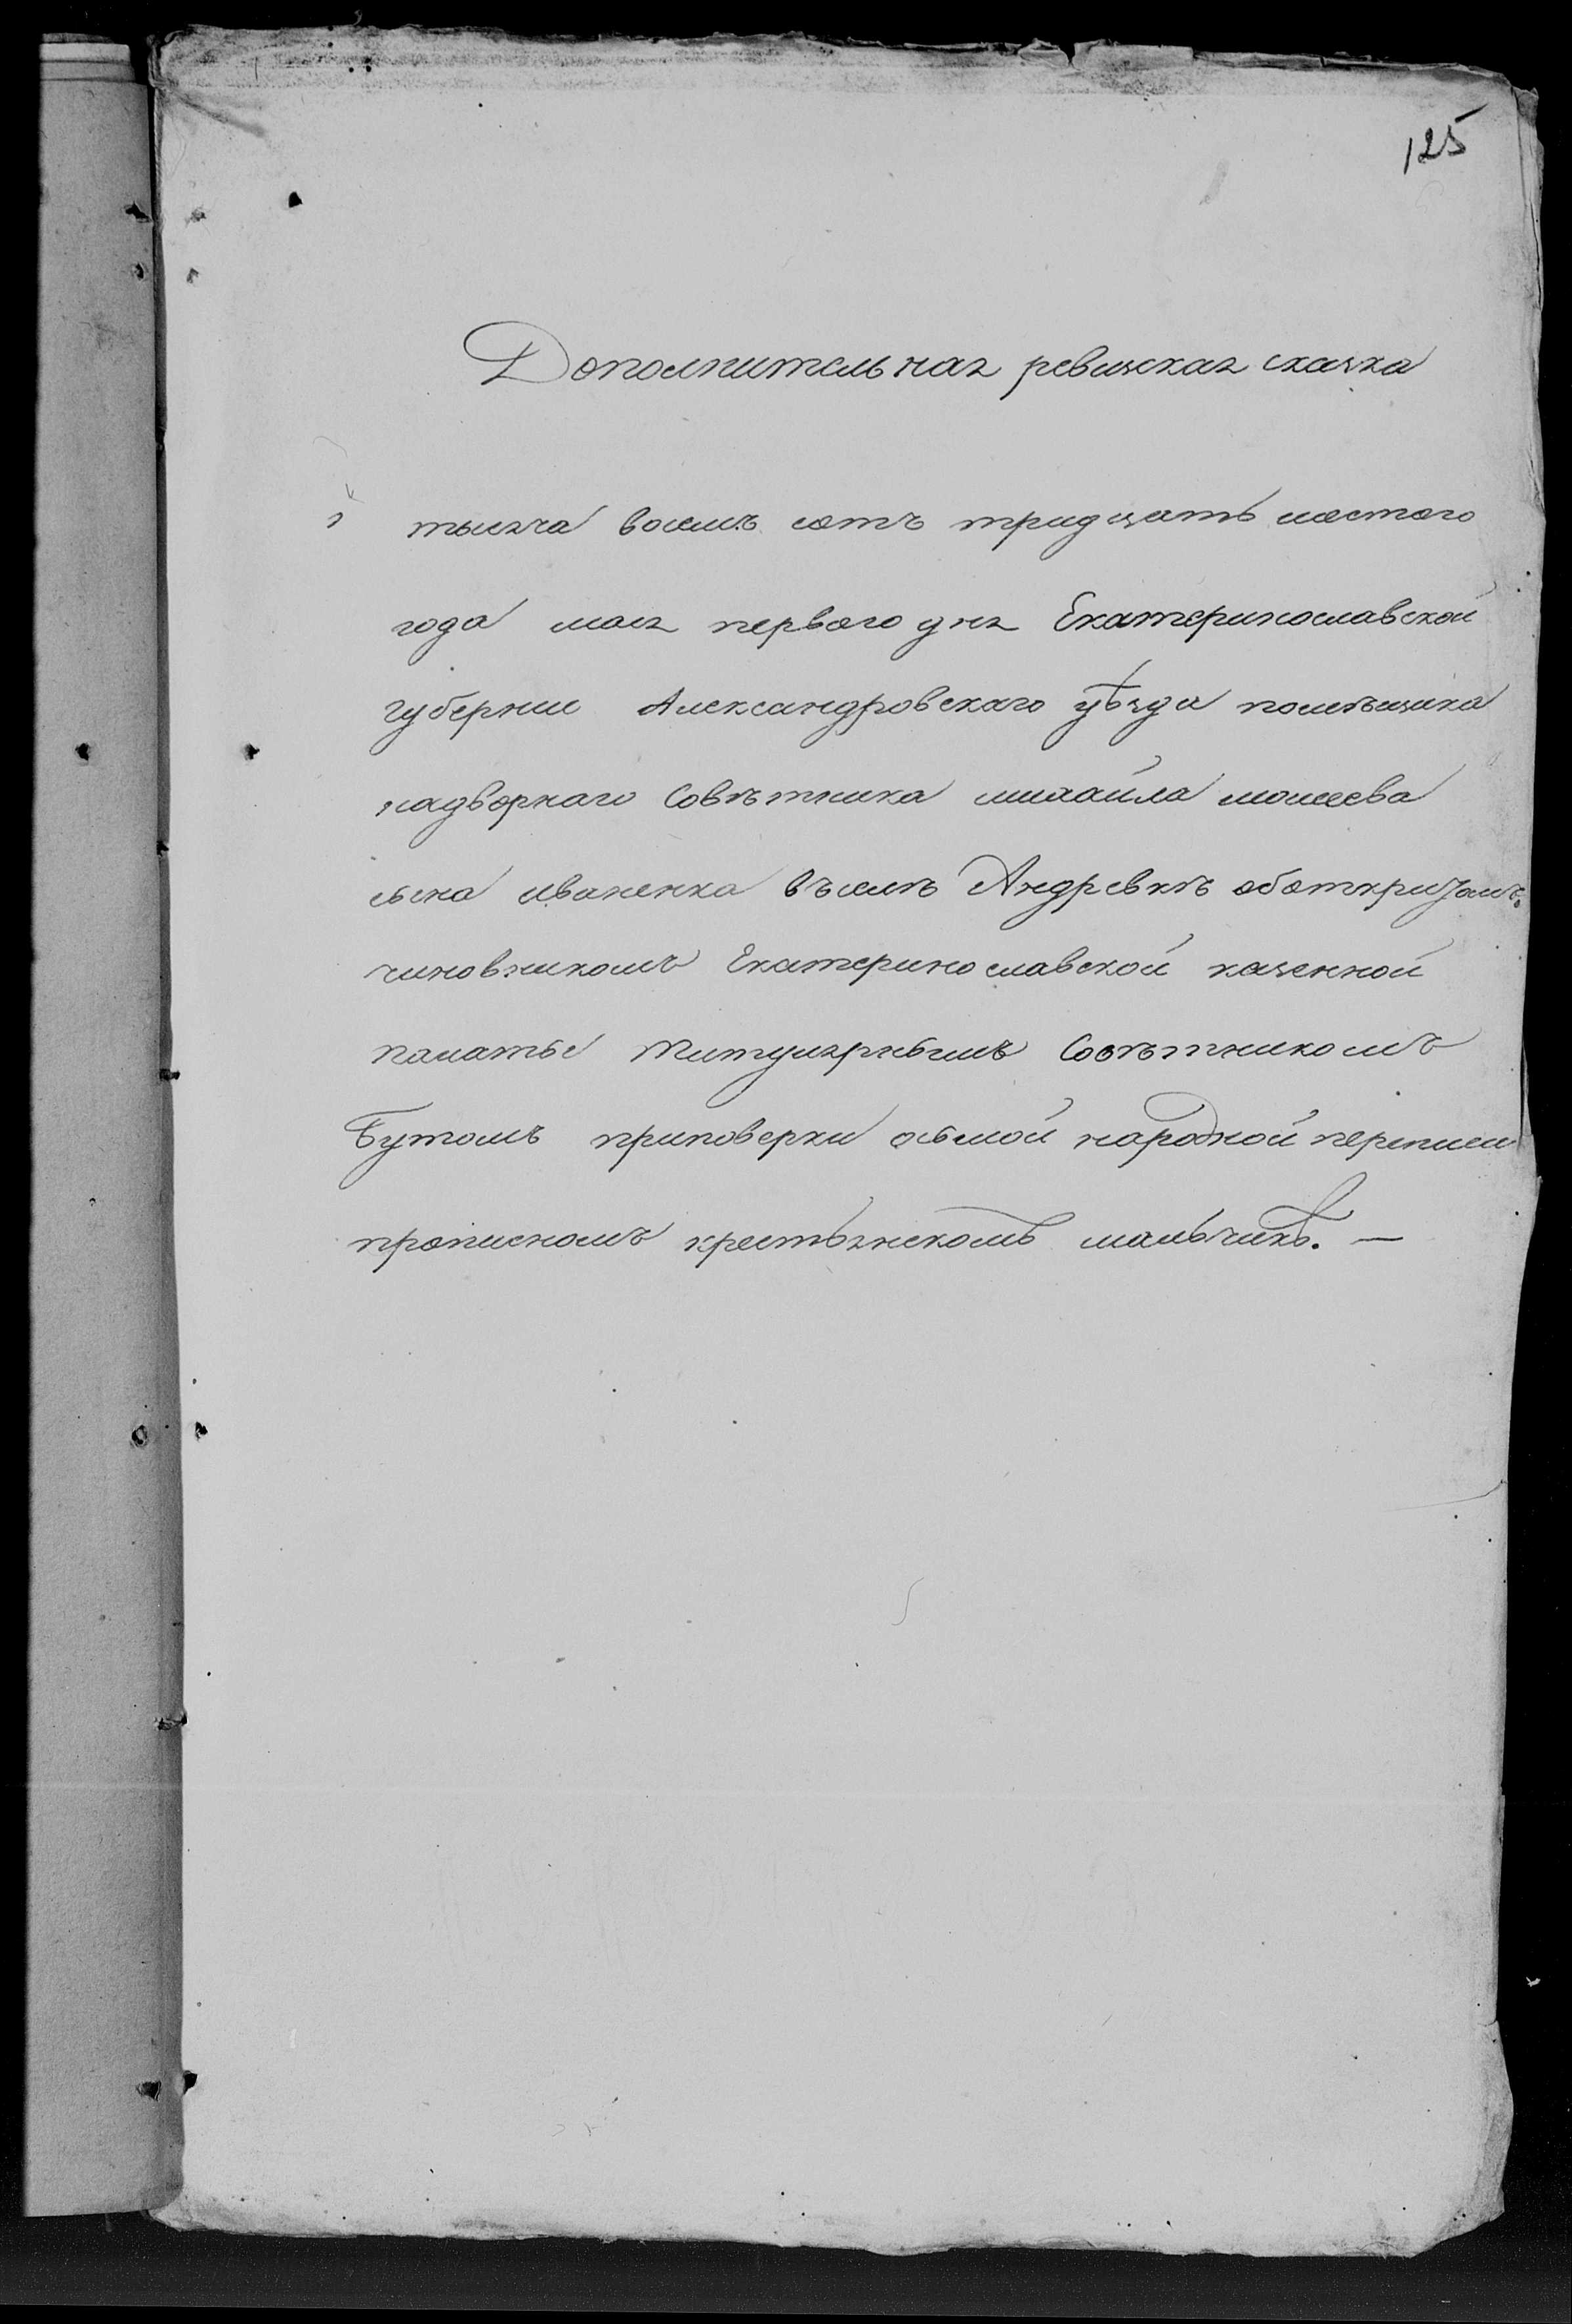 125
Дополнительная ревизская сказка
тысяча восемъ сотъ тридцать шестого
года мая первого дня Екатеринославской
губернии Александровскаго уѣзда помѣщика
надворнаго Совѣтника михайла моисеева
сына иваненка въ селѣ Андреевкѣ
чиновникомъ Екатеринославской казенной
палаты титулярнымъ Совѣтникомъ
Бутомъ приповерки осьмой народной переписи
прописномъ крестьянскомъ мальчикѣ. —